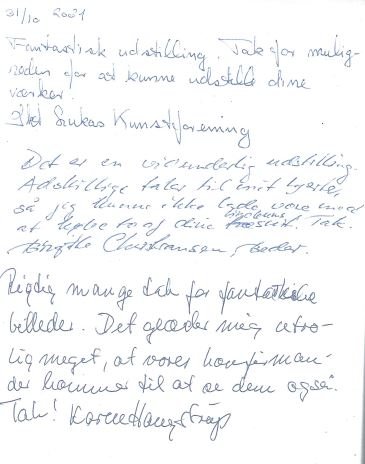 31/10 2021
Fantastisk udstilling. Tak for mulig-
heden for at kunne udstille dine
værker.
Kunstforening
Det er en vidunderlig udstilling.
Adskillige taler til mit hjerte,
så jeg kunne ikke
at to af dine Tak.
Birgitte Christiansen,
Rigtig mange tak for fantastiske
billeder. Det glæder mig utro-
lig meget, at vores konfirman-
der kommer til at se dem også.
Tak! Karen